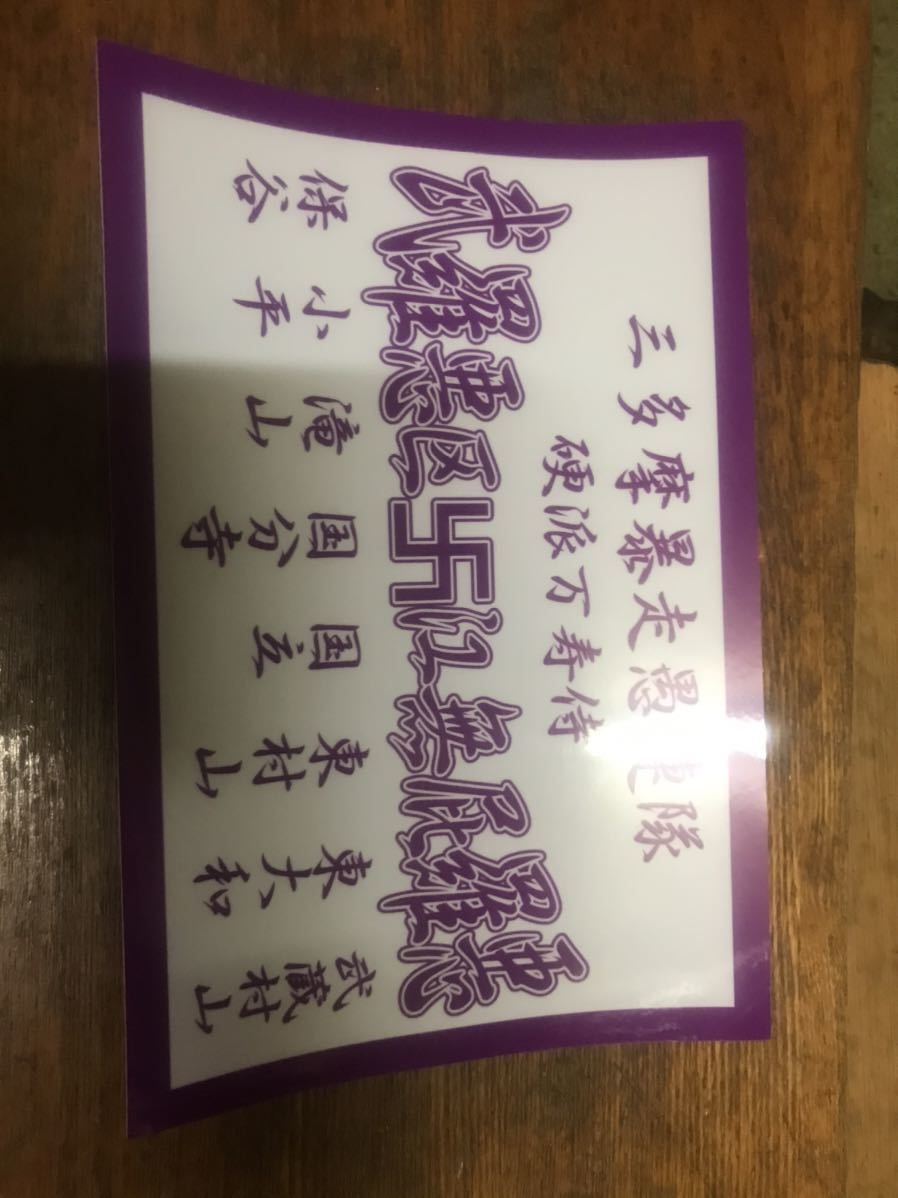 三多摩暴走愚連隊
硬派万寿侍
武羅悪区卍江無屁羅悪
保谷 小平 滝山 国分寺 国立 東村山 東大和 武蔵村山